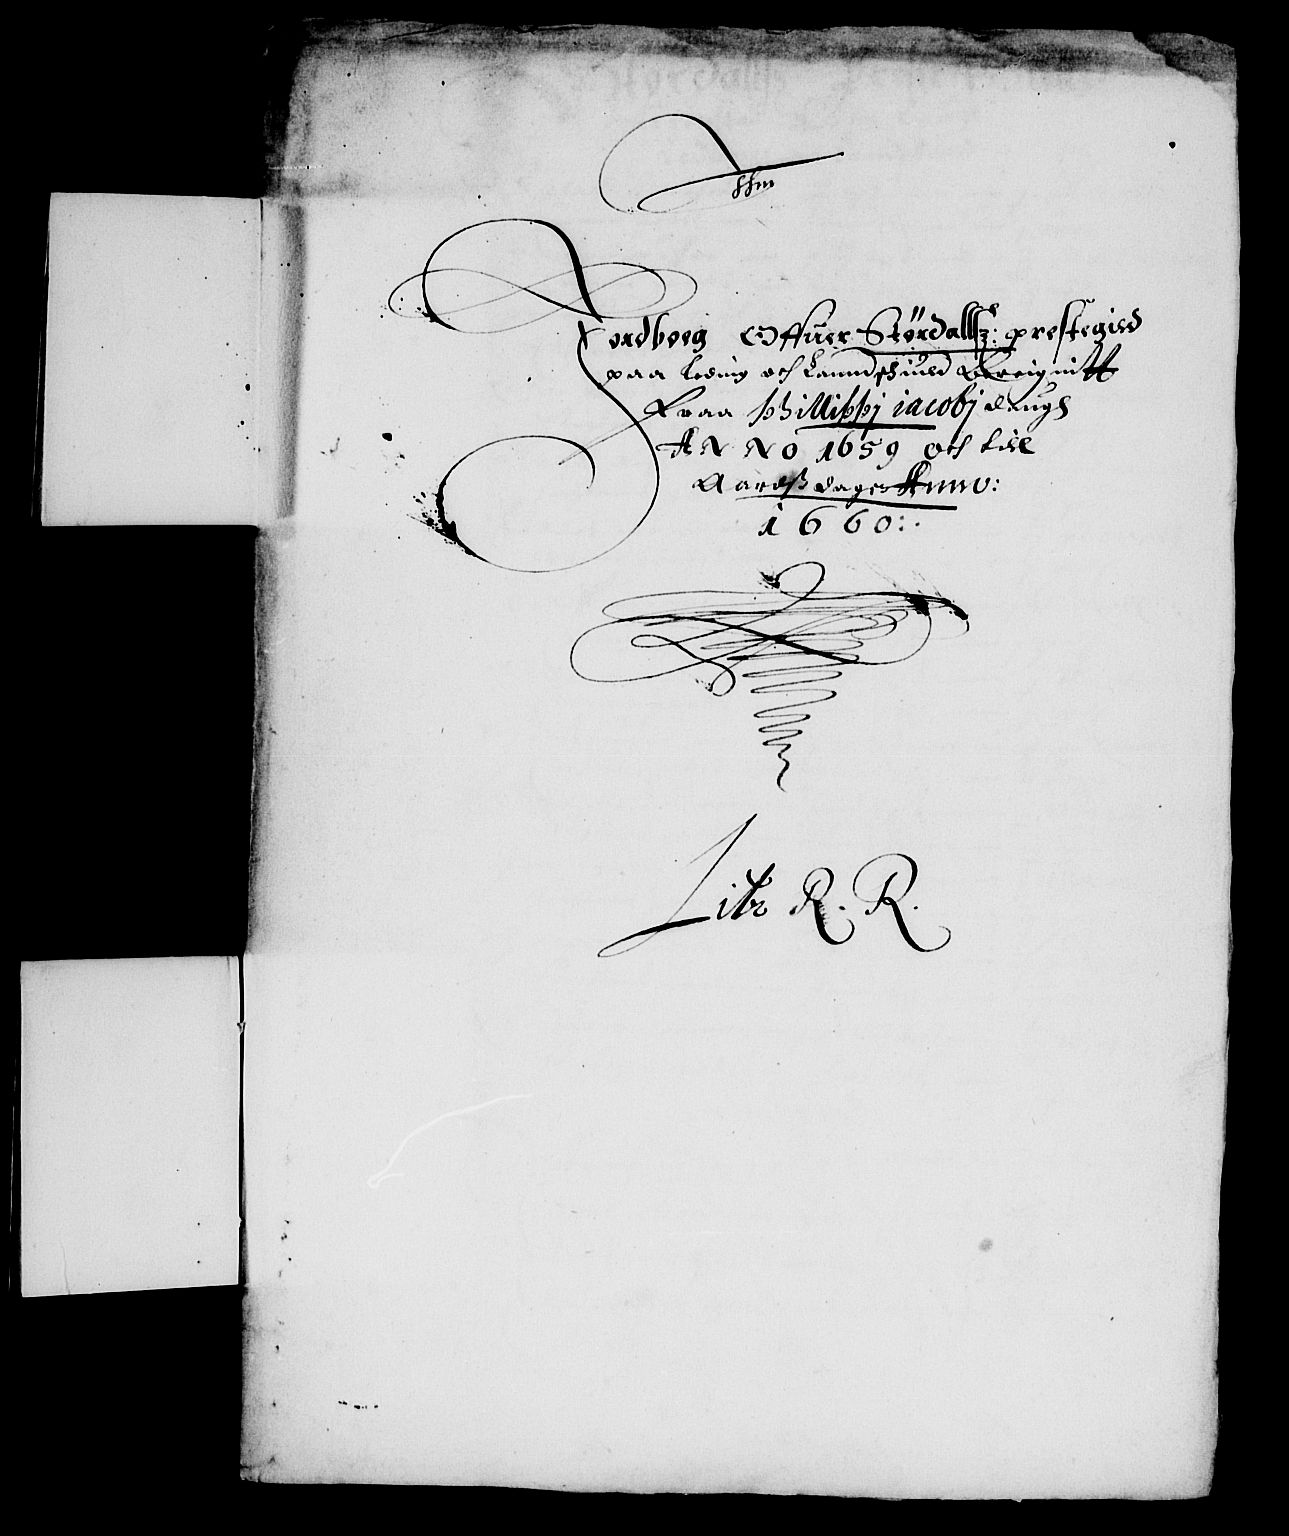 Jordboeg Offuer Størdallß: prestegield
paa leding och Lanndschiuld Bereignitt
Fraa Phillippj jacobj daugh
ANNO 1659 och till
Aarß dagen Anno:
1660:.
Litr R. R.